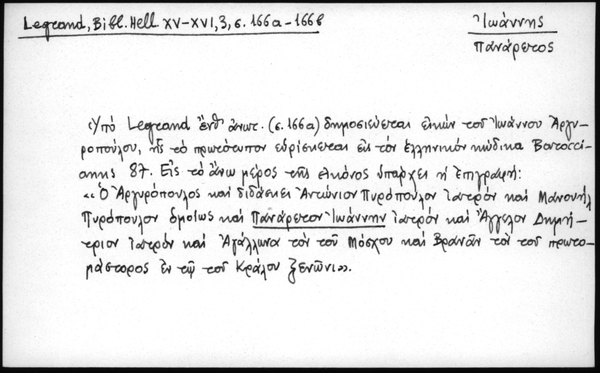 Legrand, Bibl. Hell XV-XVI, 3, σ. 166α-166β
Ἰωάννης
Πανάρετος
Ὑπό Legrand ἔνθ' ἀνωτ. (σ. 166α) δημοσιεύεται εἰκών τοῦ Ἰωάννου Ἀργυ-
ροπούλου, ἧς τό πρωτότυπον εὑρίσκεται εἰς τόν ἑλληνικόν κώδικα Barocci-
anus 87. Εἰς τό ἄνω μέρος τῆς εἰκόνος ὑπάρχει ἡ ἐπιγραφή:
«Ὁ Ἀργυρόπουλος καί διδάσκει Ἀντώνιον Πυρόπουλον ἰατρόν καί Μανουήλ
Πυρόπουλον ὁμοίως καί Πανάρετον Ἰωάννην ἰατρόν καί Ἄγγελον Δημή-
τριον ἰατρόν καί Ἀγάλλωνα τόν τοῦ Μόσχου καί Βρανᾶν τόν τοῦ πρωτο-
μάστορος ἐν τῷ τοῦ Κράλου ξενῶνι».